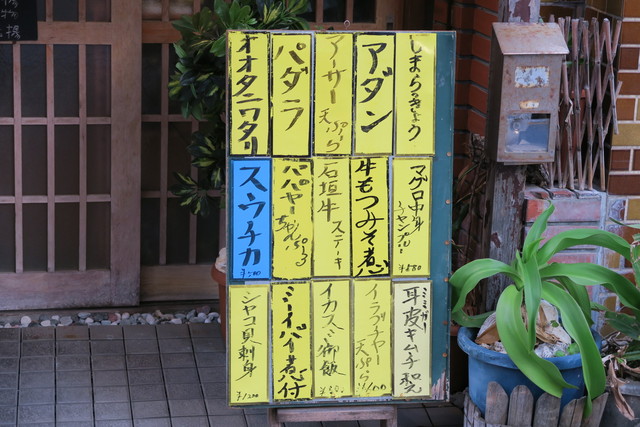 オオタニワタリ
パダラ
アーサー天ぷら
アダン
しまらっきょう
スウチカ
¥500
パパヤーちゃんぷる
石垣牛ステーキ
牛もつみそ煮
マグロ中身チャンプルー
¥680
シャコ貝刺身
¥1200
ミーバイ煮付
イカスミ御飯
イラブチャー天ぷら
ミミガー
耳皮キムチ和